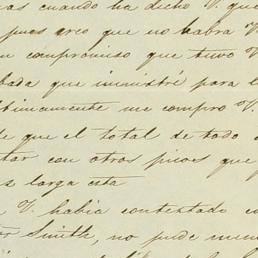 as cuando ha dicho V. que
pues creo que no habra V
n compromiso que tuvo V
bada que ministré para l
ltimamente me compro V.
le que el total de todo
tar con otros picos que
s larga cita
V. había contestado
Smith, no pude